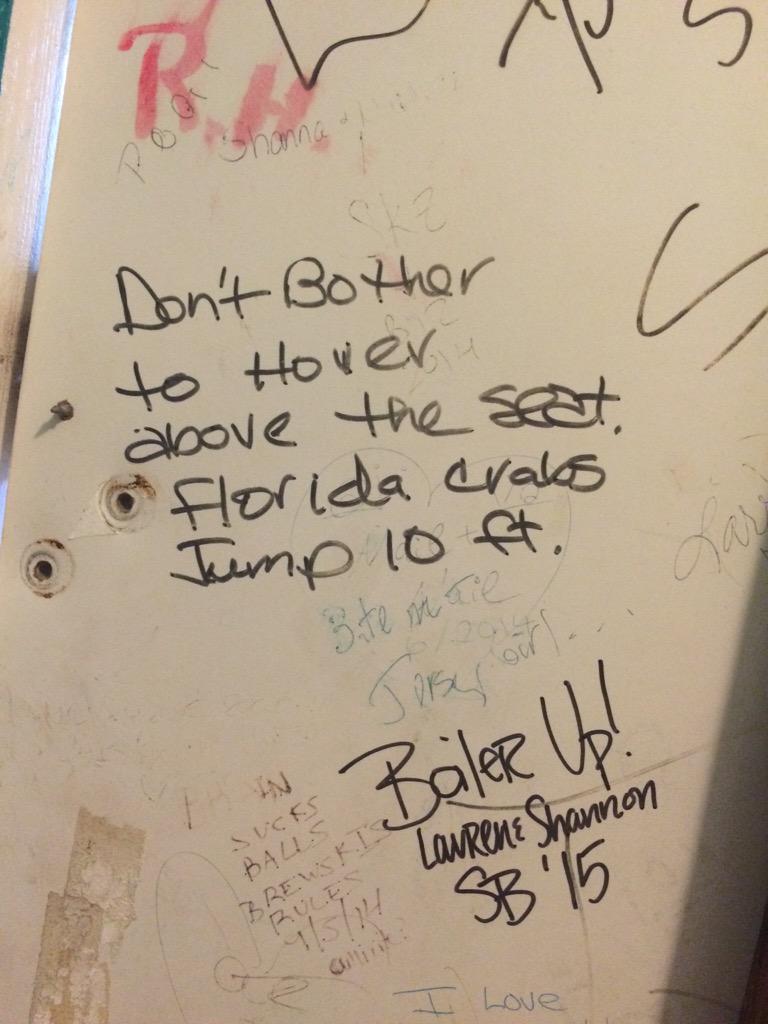 R.H.
Shanna
SKZ
Don't Bother
to Hover
above the seat.
Florida crabs
Jump 10 ft.
Bite me
Jersey
Boiler Up!
Lauren & Shannon
SB '15
SUCKS
BALLS
BREWSKI'S
RULES
9/5/14
I Love